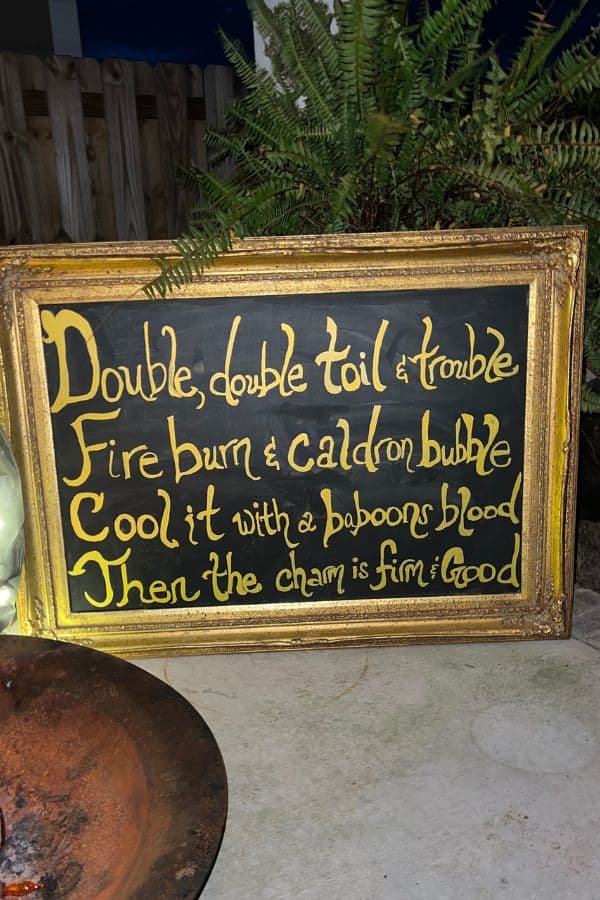 Double, double toil & trouble
Fire burn & caldron bubble
Cool it with a baboons blood
Then the charm is firm & Good